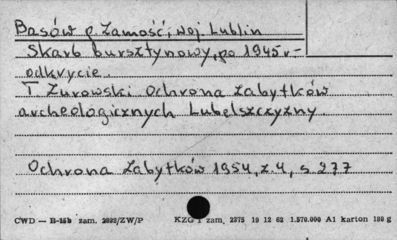 Basów p. Zamość, woj. Lublin
Skarb bursztynowy, po 1945 r -
odkrycie.
T. Żurowski Ochrona zabytków
archeologicznych Lubelszczyzny
Ochrona Zabytków 1954, z. 4, s. 277
CWD — B-15b zam. 2022/ZW/P KZG 1 zam. 2375 19 12 62 1.570.000 A1 karton 180 g